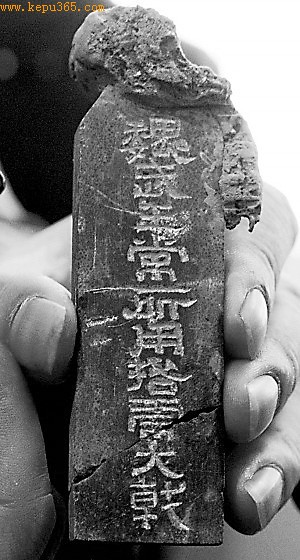 www.kepu365.com
魏武王常所用挌虎大戟